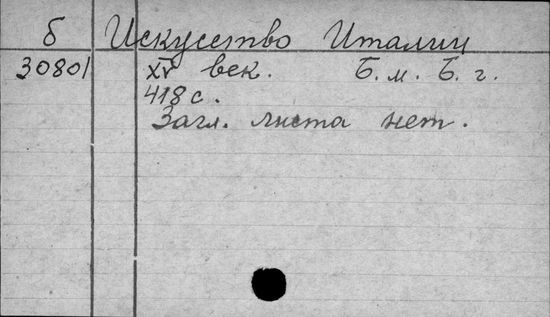 б Искусство Италии
30801 XV век. Б.м. Б.г.
418 с.
Загл. листа нет.